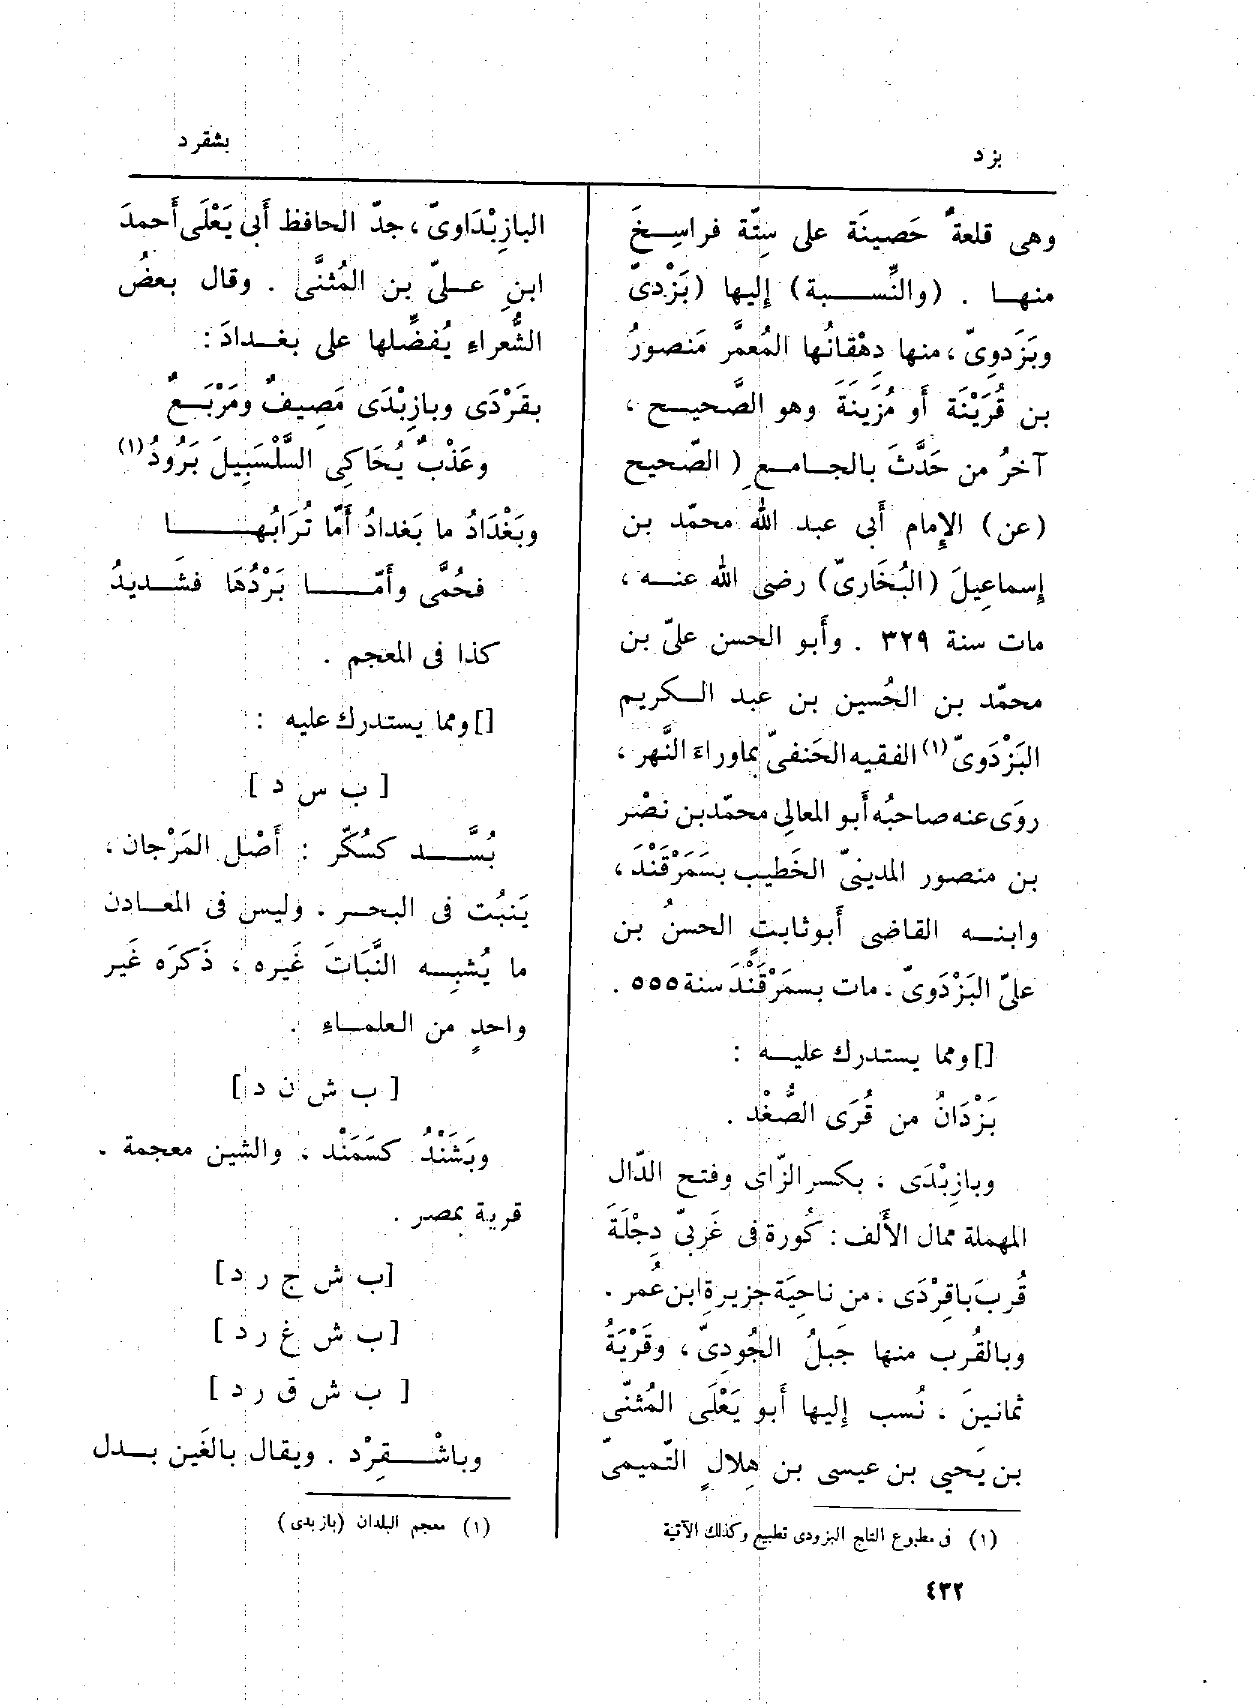 بزد
بشقرد
وهى قلعةٌ حَصينَة على سِتَّة فراسِخَ
منها . (والنِّسبة) إليها (بَزْدىّ
وبَزَدوِىّ ، منها دِهْقانُها المُعمَّر مَنصورُ
بن قُرَيْنَة أو مُزَينَة وهو الصَّحيح ،
آخرُ من حَدَّثَ بالجامع ( الصّحيح
(عن) الإمام أبى عبد الله محمّد بن
إسماعِيلَ (البُخَارىّ) رضى الله عنه ،
مات سنة ٣٢٩ . وأبو الحسن علىّ بن
محمّد بن الحُسين بن عبد الكريم
البَزْدَوىّ (١) الفقيه الحَنفىّ بماوراءَ النَّهر ،
روَى عنه صاحبُه أبو المعالى محمّد بن نصْر
بن منصور المدينىّ الخَطيب بسَمَرْقَنْدَ ،
وابنه القاضى أبو ثابتٍ الحسنُ بن
علىّ البَزْدَوىّ . مات بسمَرْقَنْدَ سنة ٥٥٥ .
[] ومما يستدرك عليه :
بَزْدَانُ من قُرَى الصُّغْد .
وبازِبْدَى ، بكسر الزّاى وفتح الدّال
المهملة ممال الأَلف : كُورة فى غَربىّ دِجْلَةَ
قُربَ باقِرْدَى . من ناحِيَة جزيرةِ ابن عُمر .
وبالقُرب منها جَبلُ الجُودِىّ ، وقَرْيَةُ
ثمانينَ . نُسب إليها أبو يَعْلَى المُثنَّى
بن يَحيى بن عيسى بن هِلالٍ التَّميمىّ
(١) فى مطبوع التاج البزودى تطبيع وكذلك الآتية
البازِبْدَاوىّ ، جدّ الحافظ أَبى يَعْلَى أَحمدَ
ابنِ علىّ بن المُثنَّى . وقال بعضُ
الشُّعراءِ يُفضِّلها على بغدادَ :
بقَرْدَى وبازِبْدَى مَصِيفٌ ومَرْبَعٌ
وعَذْبٌ يُحَاكِى السَّلْسَبِيلَ بَرُودُ (١)
وبَغْدَادُ ما بَغدادُ أَمَّا تُرَابُها
فحُمَّى وأَمّا بَرْدُهَا فشَديدُ
كذا فى المعجم .
[] ومما يستدرك عليه :
[ ب س د ]
بُسَّد كسُكَّر : أَصْل المَرْجان ،
يَنبُت فى البحر . وليس فى المعادن
ما يُشبِه النَّبَاتَ غَيره ، ذَكرَه غَير
واحدٍ من العلماءِ .
[ ب ش ن د ]
وبَشَنْدُ كسَمَنْد ، والشين معجمة .
قرية بمصر .
[ب ش ج ر د]
[ب ش غ ر د ]
[ ب ش ق ر د ]
وباشْقِرْد . ويقال بالغَين بدل
(١) معجم البلدان (بازبدى)
٤٣٢